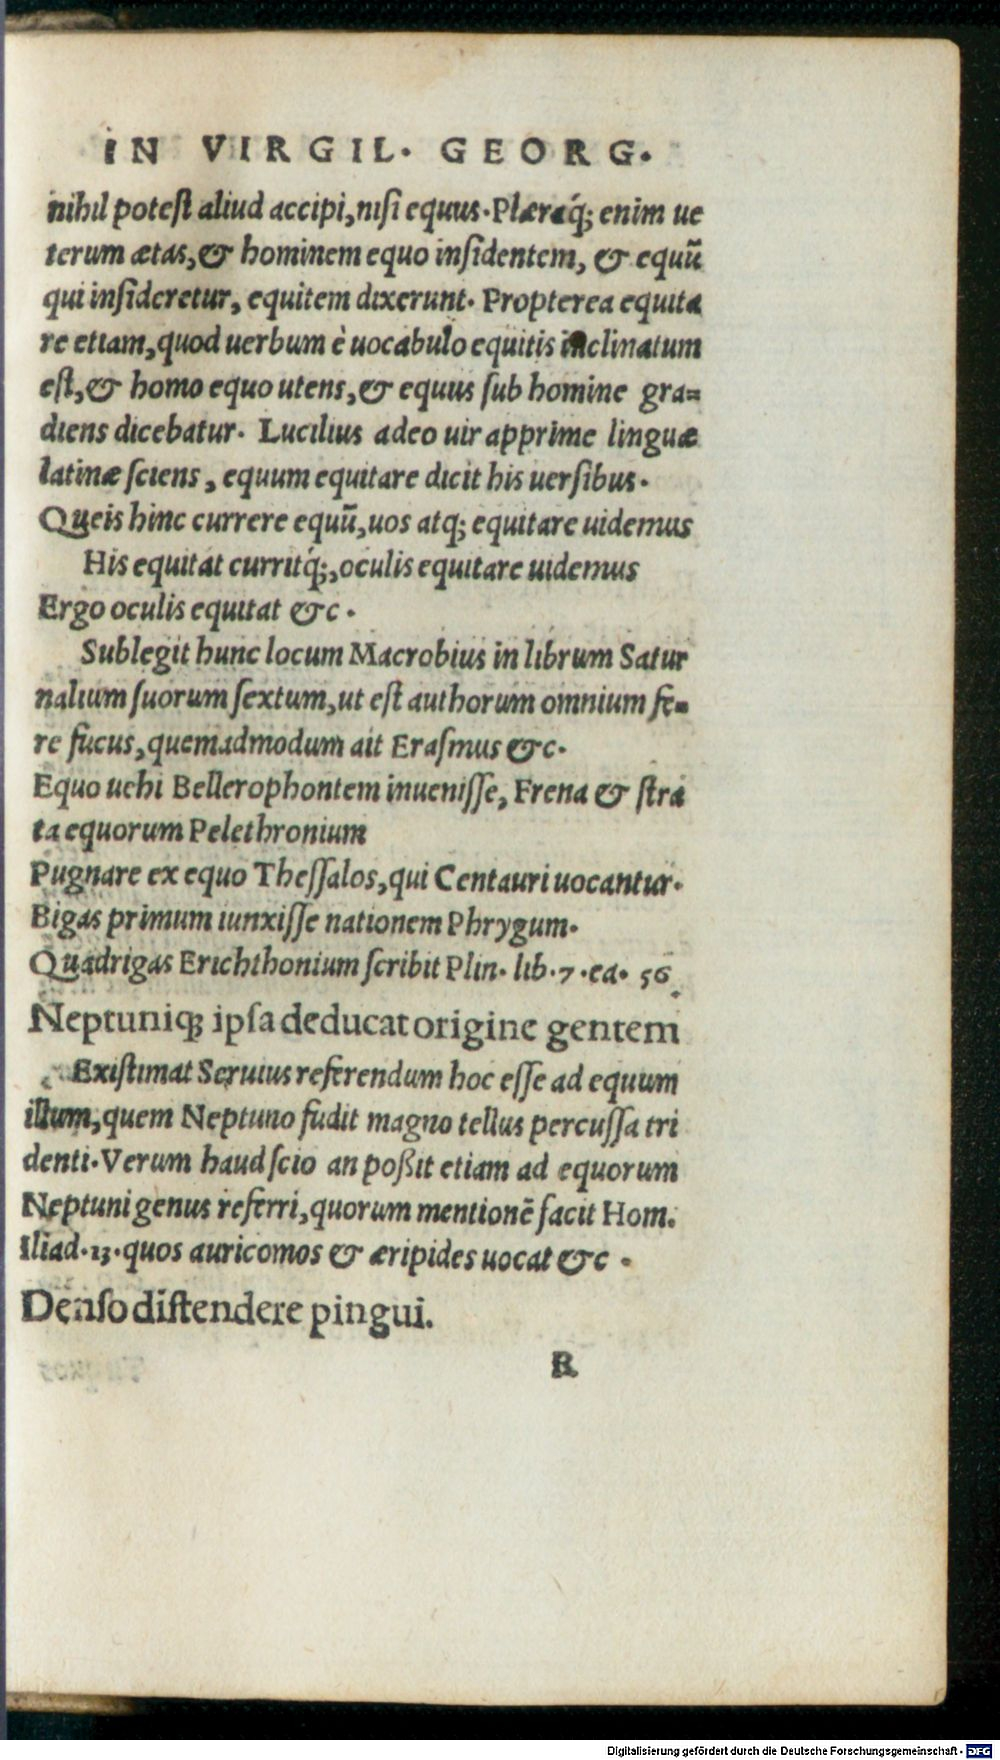 IN VIRGIL. GEORG.
nihil poteſt aliud accipi, niſi equus. Plæraq́; enim ue
terum ætas, & hominem equo inſidentem, & equũ
qui inſideretur, equitem dixerunt. Propterea equita
re etiam, quod uerbum è uocabulo equitis inclinatum
eſt, & homo equo utens, & equus ſub homine gra=
diens dicebatur. Lucilius adeo uir apprime linguæ
latinæ ſciens, equum equitare dicit his uerſibus.
Queis hinc currere equũ, uos atq; equitare uidemus
His equitat curritq́;, oculis equitare uidemus
Ergo oculis equitat &c.
Sublegit hunc locum Macrobius in librum Satur
nalium ſuorum ſextum, ut eſt authorum omnium fe=
re fucus, quemadmodum ait Eraſmus &c.
Equo uehi Bellerophontem inueniſſe, Frena & ſtra
ta equorum Pelethronium
Pugnare ex equo Theſſalos, qui Centauri uocantur.
Bigas primum iunxiſſe nationem Phrygum.
Quadrigas Erichthonium ſcribit Plin. lib. 7. ca. 56.
Neptuniq; ipſa deducat origine gentem
Exiſtimat Seruius referendum hoc eſſe ad equum
illum, quem Neptuno fudit magno tellus percuſſa tri
denti. Verum haud ſcio an poßit etiam ad equorum
Neptuni genus referri, quorum mentionẽ facit Hom.
Iliad. 13. quos auricomos & æripides uocat &c.
Denſo diſtendere pingui.
R
Digitalisierung gefördert durch die Deutsche Forschungsgemeinschaft - DFG